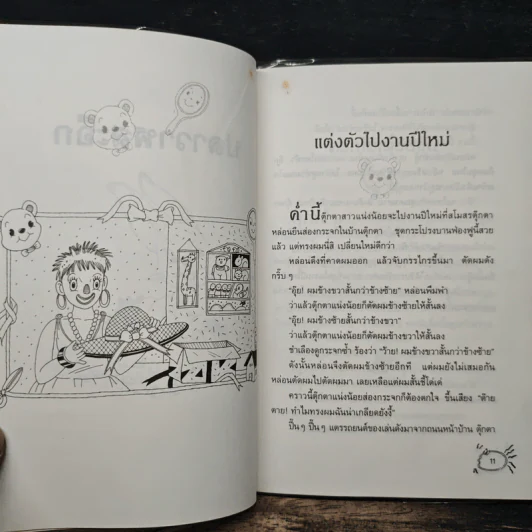 แต่งตัวไปงานปีใหม่
ค่ำนี้ ตุ๊กตาสาวแน่งน้อยจะไปงานปีใหม่ที่สโมสรตุ๊กตา
หล่อนยืนส่องกระจกในบ้านตุ๊กตา ชุดกระโปรงบานฟ่องฟูนี้สวย
แล้ว แต่ทรงผมนี้สิ เปลี่ยนใหม่ดีกว่า
หล่อนดึงที่คาดผมออก แล้วจับกรรไกรขึ้นมา ตัดผมดัง
กริ๊บ ๆ
"อุ๊ย! ผมข้างขวาสั้นกว่าข้างซ้าย" หล่อนพึมพำ
ว่าแล้วตุ๊กตาแน่งน้อยก็ตัดผมข้างซ้ายให้สั้นลง
"อุ๊ย! ผมข้างซ้ายสั้นกว่าข้างขวา"
ว่าแล้วตุ๊กตาแน่งน้อยก็ตัดผมข้างขวาให้สั้นลง
ชำเลืองดูกระจกซ้ำ ร้องว่า "ว้าย! ผมข้างขวาสั้นกว่าข้างซ้าย"
ดังนั้นหล่อนจึงตัดผมข้างซ้ายอีกที แต่ผมยังไม่เสมอกัน
หล่อนตัดผมไปตัดผมมา เลยเหลือแต่ผมสั้นชี้โด่เด่
คราวนี้ตุ๊กตาแน่งน้อยส่องกระจกก็ต้องตกใจ ขึ้นเสียง "ต๊าย
ตาย! ทำไมทรงผมฉันน่าเกลียดยังงี้"
ปิ๊น ๆ ปิ๊น ๆ แตรรถยนต์ของเล่นดังมาจากถนนหน้าบ้าน ตุ๊กตา
11